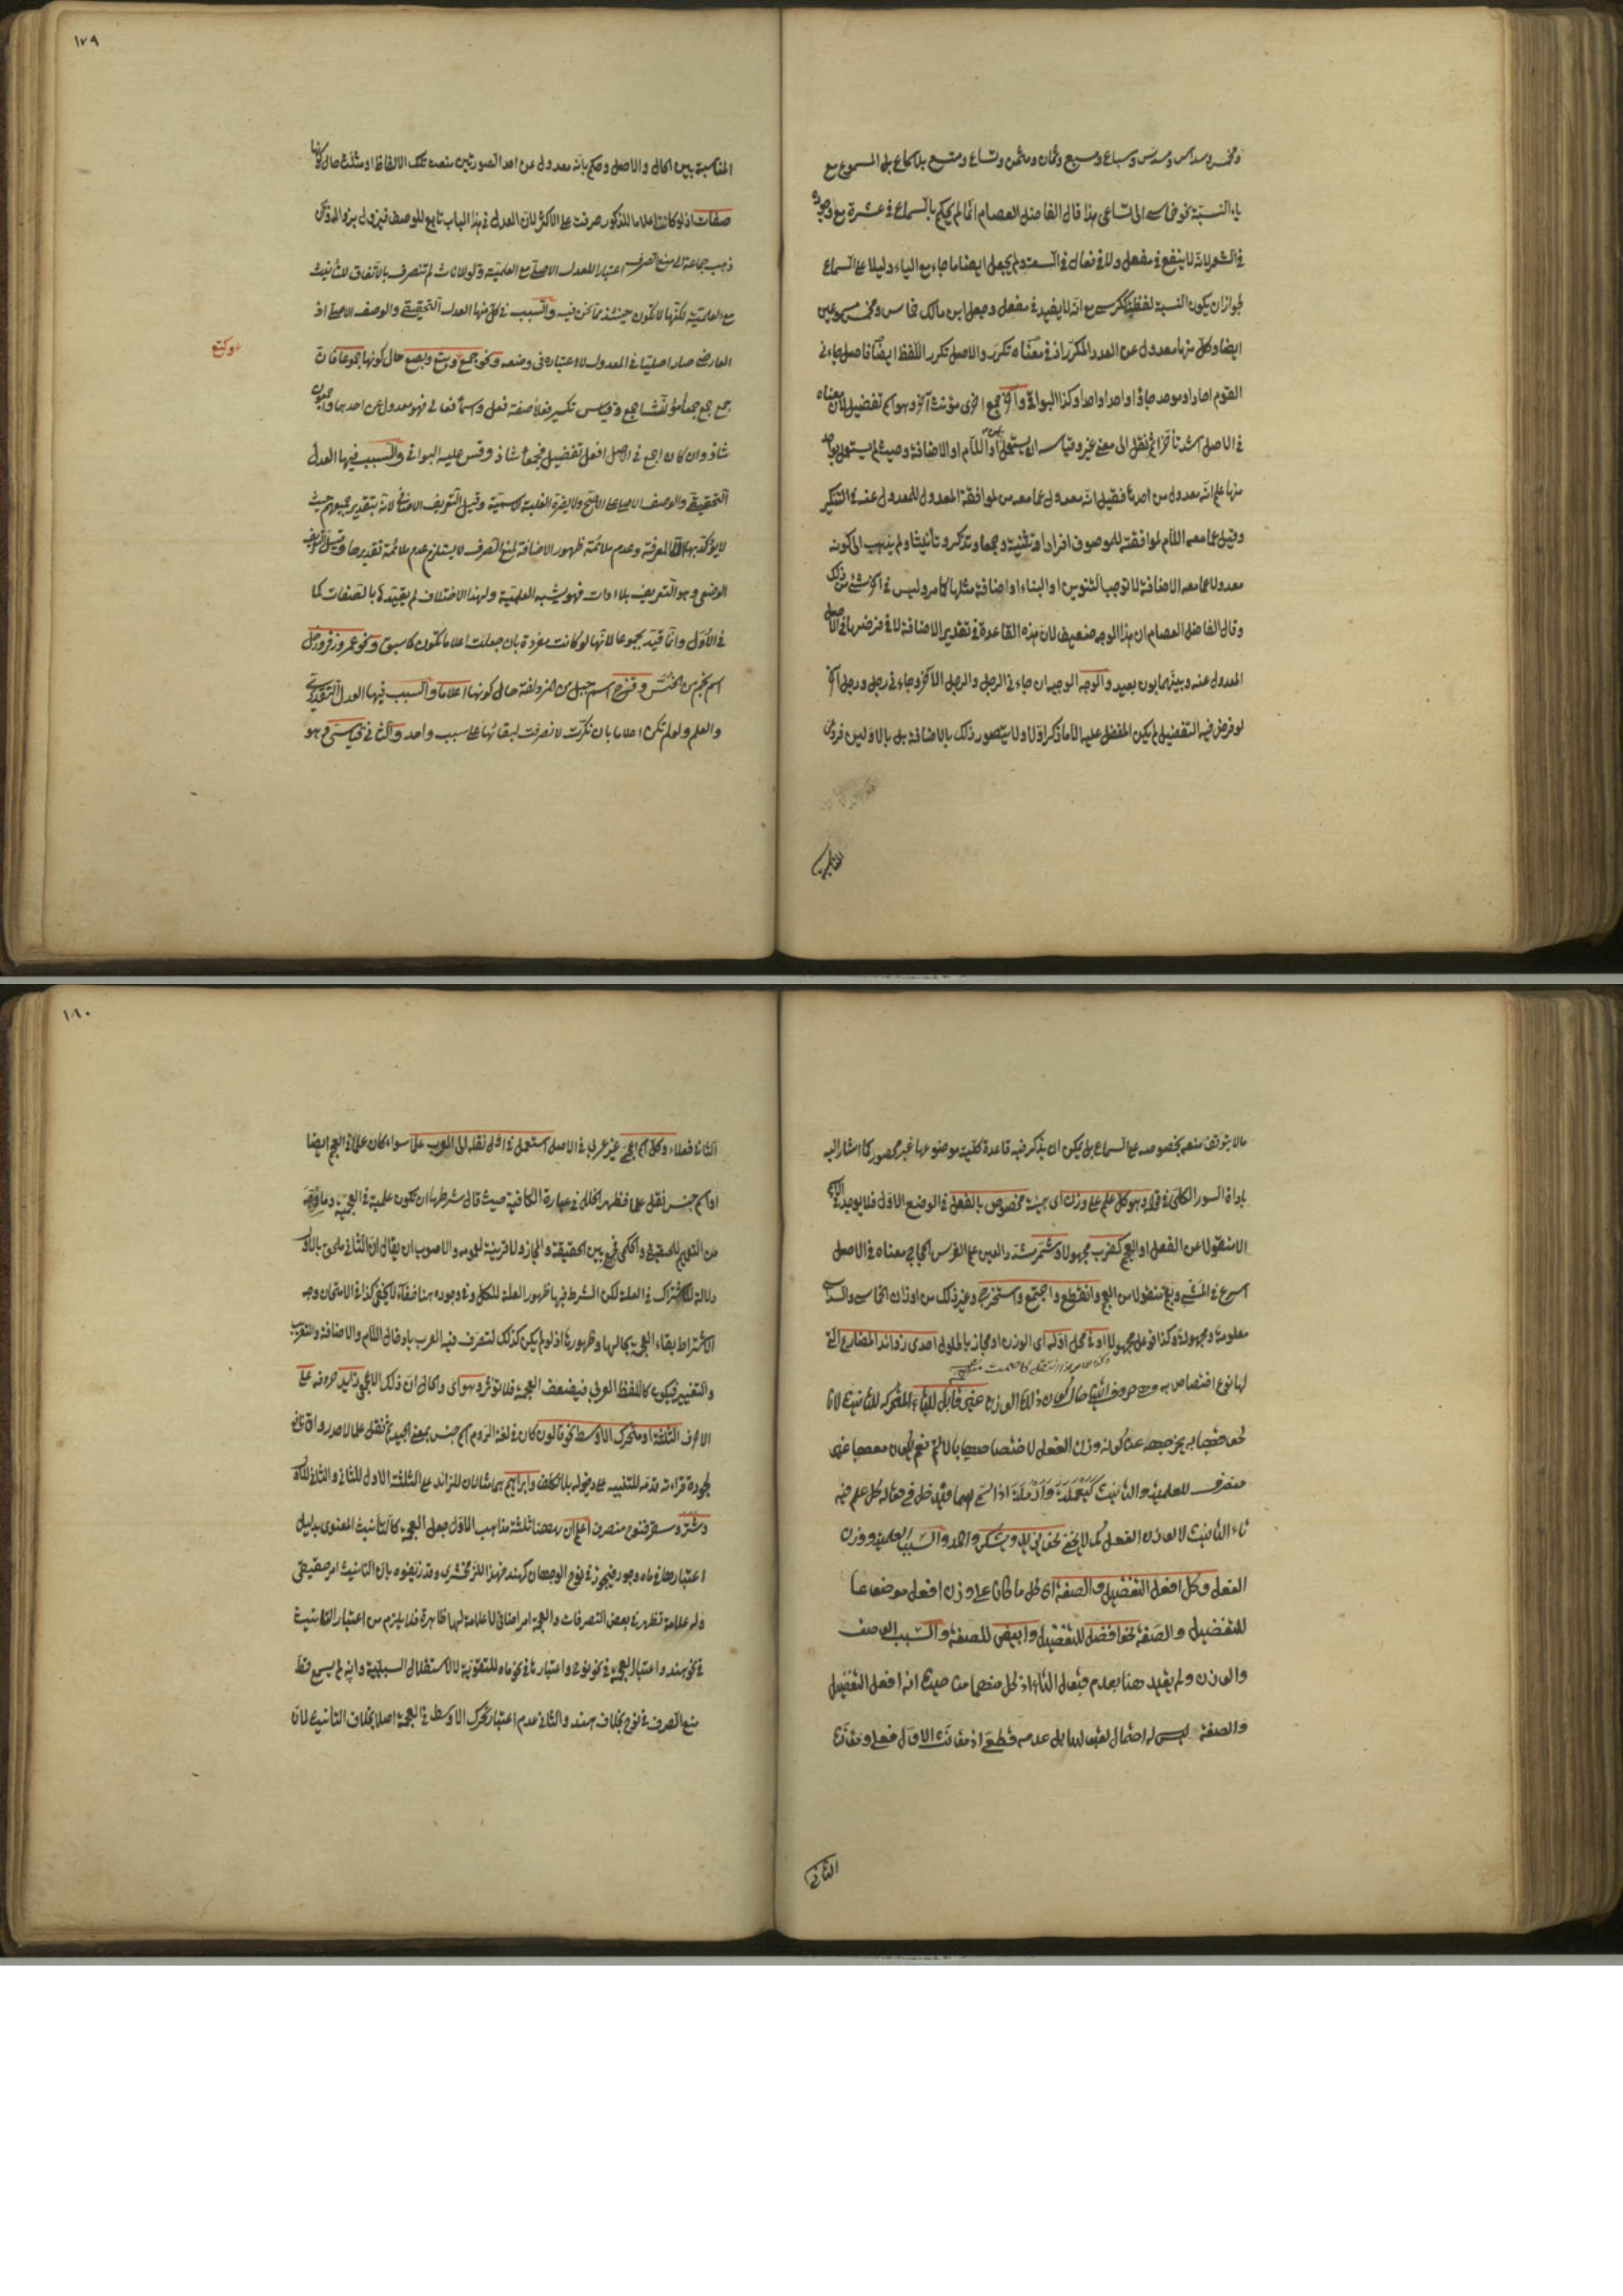 ومخمس وسداس ومسدس وسباع ومسبع وثمان ومثمن وتساع ومتسع بلا سماع بل المسموع مع
ياء النسبة نحو خماسي الى تساعي هذا قال الفاضل العصام انما لم يحكم بالسماع في عشرة مع
في الشعر لانه لا ينفع في مفعل ولا في فعال في السعة ولم يجعل ايضا ما جاء مع الياء دليلا على السماع
لجواز ان يكون النسبة لفظية ككرسي مع انه لا يفيد في مفعل وجعل ابن مالك خماس ومخمس مسموعين
ايضا وكل منها معدول عن العدد المكرر اذ في معناه تكرر والاصل تكرر اللفظ ايضا فاصل جاءني
القوم احاد او موحد جاؤا واحدا واحدا وكذا البواقي واخر جمع اخرى مؤنث آخر وهو اسم تفضيل لان معناه
في الاصل اشد تأخرا ثم نقل الى معنى غير وقياسه ان يستعمل او اللام او الاضافة وحيث لم يستعمل بواحد
منها علم انه معدول من احدها فقيل انه معدول عما معه من لموافقة المعدول للمعدول عنه في التنكير
وقيل عما معه اللام لموافقته للموصوف افرادا وتثنية وجمعا وتذكيرا وتأنيثا ولم يذهب الى كونه
معدولا عما معه الاضافة لانها توجب التنوين او البناء او اضافة مثلها كما مر وليس في اخر شئ من ذلك
وقال الفاضل العصام ان هذا الوجه ضعيف لان هذه القاعدة في تقدير الاضافة لا في فرضها في الاصل
المعدول عنه وبينهما بون بعيد والوجه الوجيه ان جاء في الرجل والرجل الآخر وجاءني رجل ورجل آخر
لو فرض فيه التفضيل لم يكن المفضل عليه الا ما ذكر اولا ولا يتصور ذلك بالاضافة بل بالاولين فروعي
المناسبة
١٧٩
المناسبة بين الحال والاصل وحكم بانه معدول عن احد الصورتين منعت تلك الالفاظ او مثلث حال كونها
صفات اذ لو كانت اعلاما للذكور صرفت على الاكثر لان العدل في هذا الباب تابع للوصف فيزول بزواله ولكن
ذهب جماعة الى منع الصرف اعتبارا للعدل الاصلي مع العلمية ولو للاناث لم تنصرف بالاتفاق للتأنيث
مع العلمية لكنها لا تكون حينئذ مما نحن فيه والسبب في كل منها العدل التحقيقي والوصف الاصلي اذ
العارضي صار اصليا في المعدول لاعتباره في وضعه ونحو جمع وبتع وبصع حال كونها جموعا فان
وكتع
جمع جمع جمعاء مؤنث اجمع وقياس تكسير فعلاء صفة فعل واسما فعالى فهو معدول عن احدهما واجمعون
شاذ وان كان اجمع في الاصل افعل تفضيل فجمعاء شاذ وقس عليه البواقي والسبب فيها العدل
التحقيقي والوصف الاصلي على الاصح ولا يضره الغلبة الاسمية وقيل التعريف الاضافي لانه بتقدير جميعهم حيث
لا يؤكد بها الا المعرفة وعدم ملائمة ظهور الاضافة لمنع الصرف لا يستلزم عدم ملائمة تقديرها وقيل التعريف
الوضعي وهو التعريف بلا ادات فهو يشبه العلمية ولهذا الاختلاف لم يقيده بالصفات كما
في الاول وانما قيد بجموعا لانها لو كانت مفردة بان جعلت اعلاما تكون كما سبق ونحو عمر وزفر وزحل
اسم نجم من الخنس وقزح اسم جبل من المزدلفة حال كونها اعلاما والسبب فيها العدل التقديري
والعلم ولو لم تكن اعلاما بان نكرت لانصرفت لبقائها على سبب واحد والثاني قياسي وهو
ما لا يتوقف منعه بخصوصه على السماع بل يمكن ان يذكر فيه قاعدة كلية موضوعها غير محصور كما اشار اليه
باداة السور الكلي في قوله وهو كل علم على وزن اي هيئة مخصوص بالفعل في الوضع الاول فلا يوجد في
الا منقولا عن الفعل او العجم كضرب مجهولا وشمر مشدد العين علم الفرس الحجاج معناه في الاصل
اسرع في المشي وبقم منقولا من العجم وانقطع واجتمع واستخرج وغير ذلك من اوزان الخماسي والسداسي
معلومة ومجهولة وكذا فوعل مجهولا او في محل اوله اي الوزن او مجاز بالحلول احدى زوائد المضارع التي
لها نوع اختصاص به وهي حروف اتين حال كون ذلك الوزن غير قابل للتاء المتحركة للتأنيث لان
لحوقها به يخرجه عن كونه وزن الفعل لاختصاصها بالاسم نعم يكون معها غير
منصرف للعلمية والتأنيث كيعملة وارملة اذا سمي بهما فيدخل في مقاله كل علم فيه
تاء التأنيث لا لوزن الفعل كما لا يخفى نحو يزيد ويشكر واحمد والسبب العلمية ووزن
الفعل وكل افعل التفضيل والصفة اي كل ما كان على وزن افعل موضوعا
للتفضيل والصفة نحو افضل للتفضيل وابيض للصفة والسبب الوصف
والوزن ولم يقيد هنا بعدم قبول التاء اذ كل منهما من حيث انه افعل التفضيل
والصفة ليس له احتمال لقبولها بل عدمه قطعي اذ مؤنث الاول فعلى ومؤنث
الثاني
١٨٠
الثاني فعلاء وكل اسم اعجمي غير عربي في الاصل استعمل في اول نقله الى العرب علما سواء كان علما في العجم ايضا
او اسم جنس نقل علما فظهر الخلل في عبارة الكافية حيث قال شرطها ان تكون علمية في العجمة وما وجه
من التعميم للحقيقي والحكمي جمع بين الحقيقة والمجاز ولا قرينة لعمومه والاصوب ان يقال ان الثاني ملحق بالاول
دلالة للاشتراك في العلة لكن الشرط فيها ظهور العلة للكل وفي وجوده هنا خفاء لا يخفى كذا في الامتحان وجه
الاشتراط بقاء العجمة بحالها وظهورها اذ لو لم يكن كذلك لتصرف فيه العرب بادخال اللام والاضافة والتعريب
والتغيير فيكون كاللفظ العربي فيضعف العجمة فلا تؤثر وهو اي والحال ان ذلك الاعجمي زائد حروفه على
الاحرف الثلثة او متحرك الاوسط نحو قالون كان في لغة الروم اسم جنس بمعنى الجيد ثم نقل علما لاحد رواة نافع
لجودة قراءته قدمه للتنبيه على دخوله بلا تكلف وابراهيم هما مثالان للزائد على الثلثة الاول للثاني والثاني للاول
وشتر وسقر فنوح منصرف اعلم ان ههنا ثلثة مذاهب الاول جعل العجمة كالتأنيث المعنوي بدليل
اعتبارها في ماه وجور فيجوز في نوح الوجهان كهند فهذا للزمخشري وقد زيفوه بان التأنيث امر حقيقي
وله علامة تظهر في بعض التصرفات والعجمة امر اضافي لا علامة لها ظاهرة فلا يلزم من اعتبار التأنيث
في نحو هند واعتبار العجمة في نحو نوح واعتبارها في نحو ماه للتقوية لا لاستقلال السببية وانه لم يسمع قط
منع الصرف في نوح بخلاف هند والثاني عدم اعتبار تحرك الاوسط في العجمة اصلا بخلاف التأنيث لان